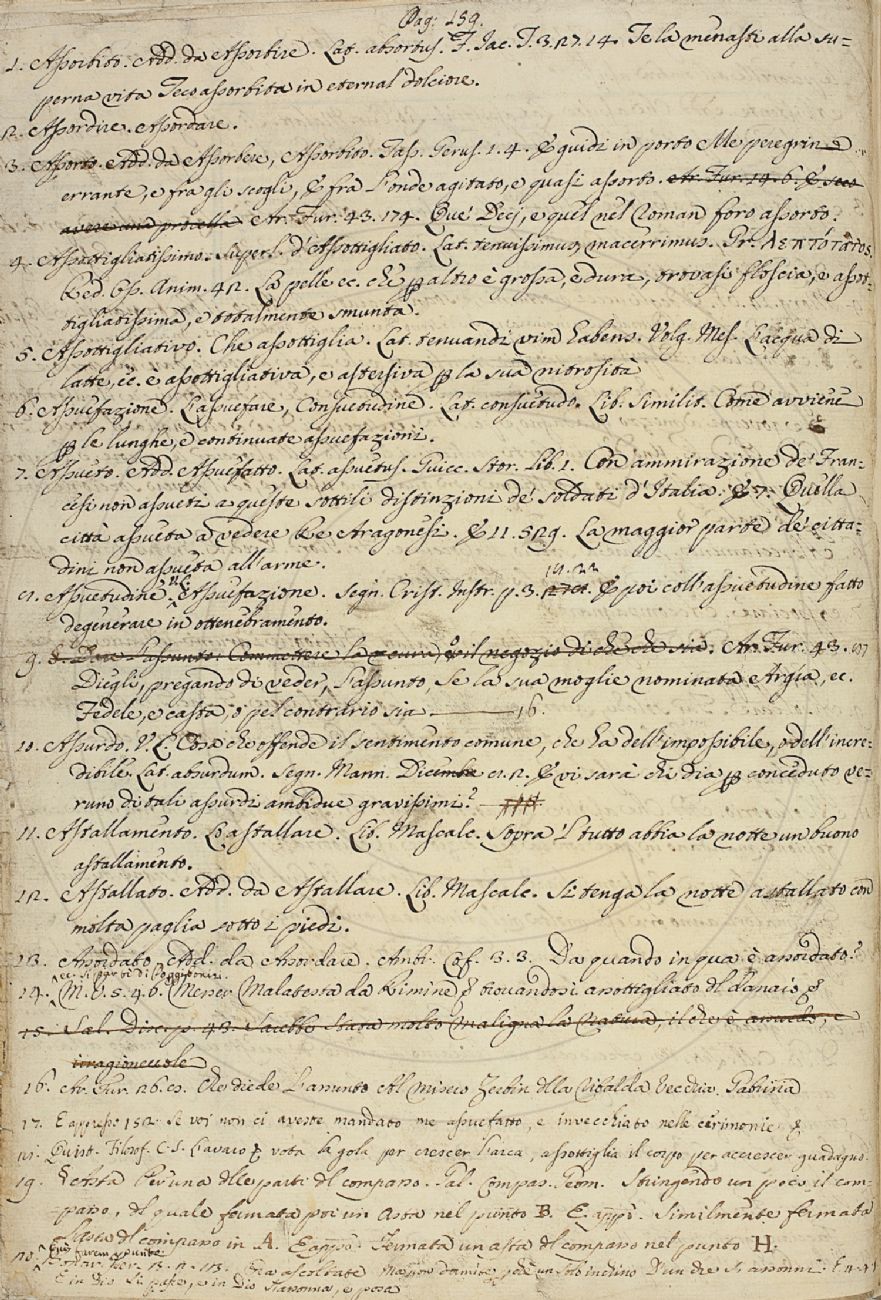 Pag: 159.
1. Assorbito. Add. da Assorbire. Lat. absortus. F. Iac. T. 3. 27. 14. Te la menasti alla su=
perna vita Teco assorbita in eternal dolciore.
2. Assordire. Assordare.
3. Assorto. Add. da Assorbere, Assorbito. Tass. Gerus. 1. 4. & guidi in porto Me peregrino
errante, e fra gli scogli, & fra l'onde agitato, e quasi assorto. Ar. Fur. 14. 6. &
avere una procella Ar. Fur. 43. 174. Que' Decj, e quel nel Roman foro assorto.
4. Assottigliatissimo. Superl. d'Assottigliato. Lat. tenuissimus, macerrimus. Gr. λεπτότατος.
Red. Oss. Anim. 42. La pelle ec. che altro è grossa, e dura, trovasi floscia, e assot-
tigliatissima, e totalmente smunta.
5. Assottigliativo. Che assottiglia. Lat. tenuandi vim habens. Volg. Mes. L'acqua di
latte, ec. è assottigliativa, e astersiva la sua nitrosità
6. Assuefazione. L'assuefare, Consuetudine. Lat. consuetudo. Lib. Similit. Come avviene
le lunghe, e continuate assuefazioni.
7. Assueto. Add. Assuefatto. Lat. assuetus. Guicc. Stor. Lib. 1. Con ammirazione de' Fran-
cesi non assueti a queste sottili distinzioni de' soldati d'Italia. & 7. Quella
città assueta a vedere Re Aragonesi. & 11. 529. La maggior parte de' citta-
dini non assueta all'arme.
8. Assuetudine V.L. Assuefazione. Segn. Crist. Instr. p. 3. 19. 22 & poi coll'assuetudine fatto
degenerare in ottenebramento.
9. §. Dare l'assunto: Commettere la cura, o il negozio di che che sia. Ar. Fur. 43.
Diegli, pregando di veder, l'assunto, Se la sua moglie nominata Argìa, ec.
Fedele, e casta, o pel contrario sia ——— 16.
10. Assurdo. V.L. Cosa che offende il sentimento comune, che ha dell'impossibile, o dell'incre-
dibile. Lat. absurdum. Segn. Mann. Dicembre & vi sarà chi dia conceduto ve-
runo di tali assurdi ambidue gravissimi?
11. Astallamento. L'astallare. Lib. Mascalc. Sopra 'l tutto abbia la notte un buono
astallamento.
12. Astallato. Add. da Astallare. Lib. Mascalc. Si tenga la notte astallato con
molta paglia sotto i piedi.
13. Assordato. Add. da Assordare. Ambr. Cof. 3. 3. Da quando in qua è assordato?
ec. si partì di Poggibonizi.
14. M.V. 5. 46. Messer Malatesta da Rimine & trovandosi assottigliato di danaio &
15. Sal. Disc. p. 43. Sarebbe stata molto maligna la Natura, il che è assurdo, e
irragionevole
16. Ar. Fur. 26. Che diede l'assunto al misero Zerbin della ribalda vecchia Gabrina
17. E appress. 152. Se voi non ci aveste mandato me assuefatto, e invecchiato nelle cerimonie &
18. Quist. Filosof. C.S. L'avaro & vota la gola per crescer l'arca, assottiglia il corpo per accrescer guadagno.
19. & Asta per una delle parti del compasso. Gal. Compas. Geom. Stringendo un poco il com-
passo, del quale fermata poi un'asta nel punto B. E appr. Similmente fermata
l'asta del compasso in A. E appr. Fermata un'asta del compasso nel punto H.
20. ascoltate un solo inchino
E in Dio si pasce, e in Dio s'assonna, e posa